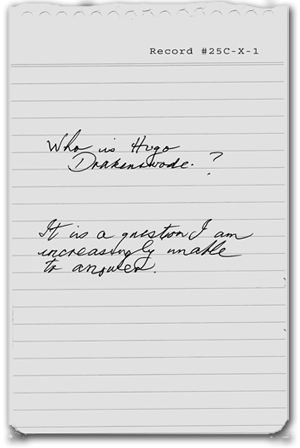 Record #25C-X-1
Who is Hugo
Drakenswode. ?
It is a question I am
increasingly unable
to answer.